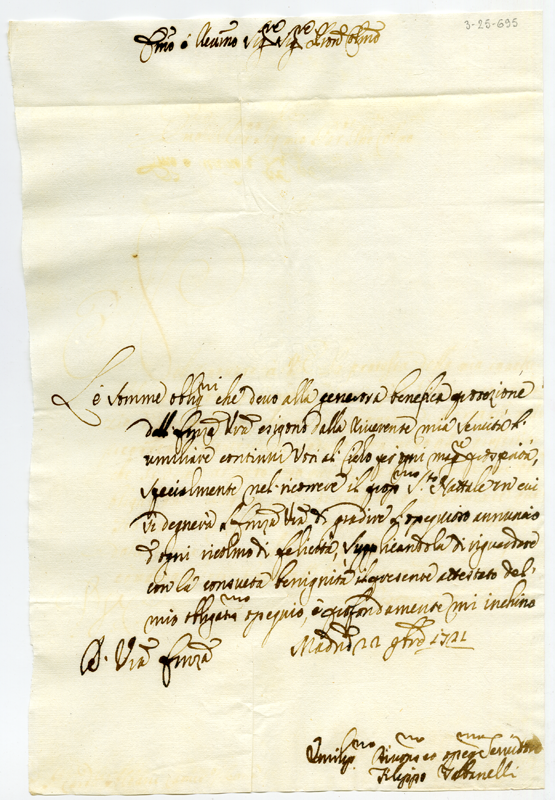 3-25-695
Emo é Revmo Sigre Sigre Pron Colmo
Le somme obligni che devo alla generosa benefica protezione
dell' Emza Vra esigono dalla riverente mia servitù l'
umiliare continui Voti al Cielo per ogni magre prosperità,
specialmente nel ricorrere il prosmo Sto Nattale in cui
si degnerà l'Emza Vra di gradire l'ossequioso annuncio
d'ogni ricolmo di felicità, supplicandola di riguardare
con la consueta benignità il presente attestato del
mio obligatmo ossequio, e profondamente mi inchino
Madrid 22 9bre 1721
D. Vra Emza
Umilismo Divmo ed ossequmo servidore
Filippo Tabanelli